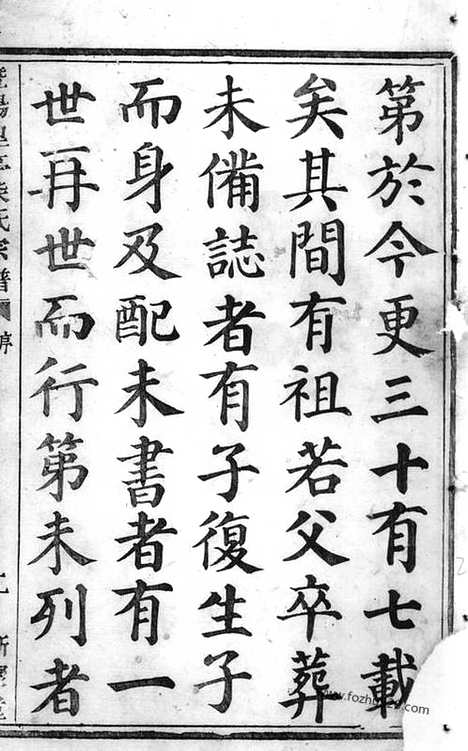 第於今更三十有七載
矣其間有祖若父卒葬
未備誌者有子復生子
而身及配未書者有一
世再世而行第未列者
氏宗譜
序
www.fozhu